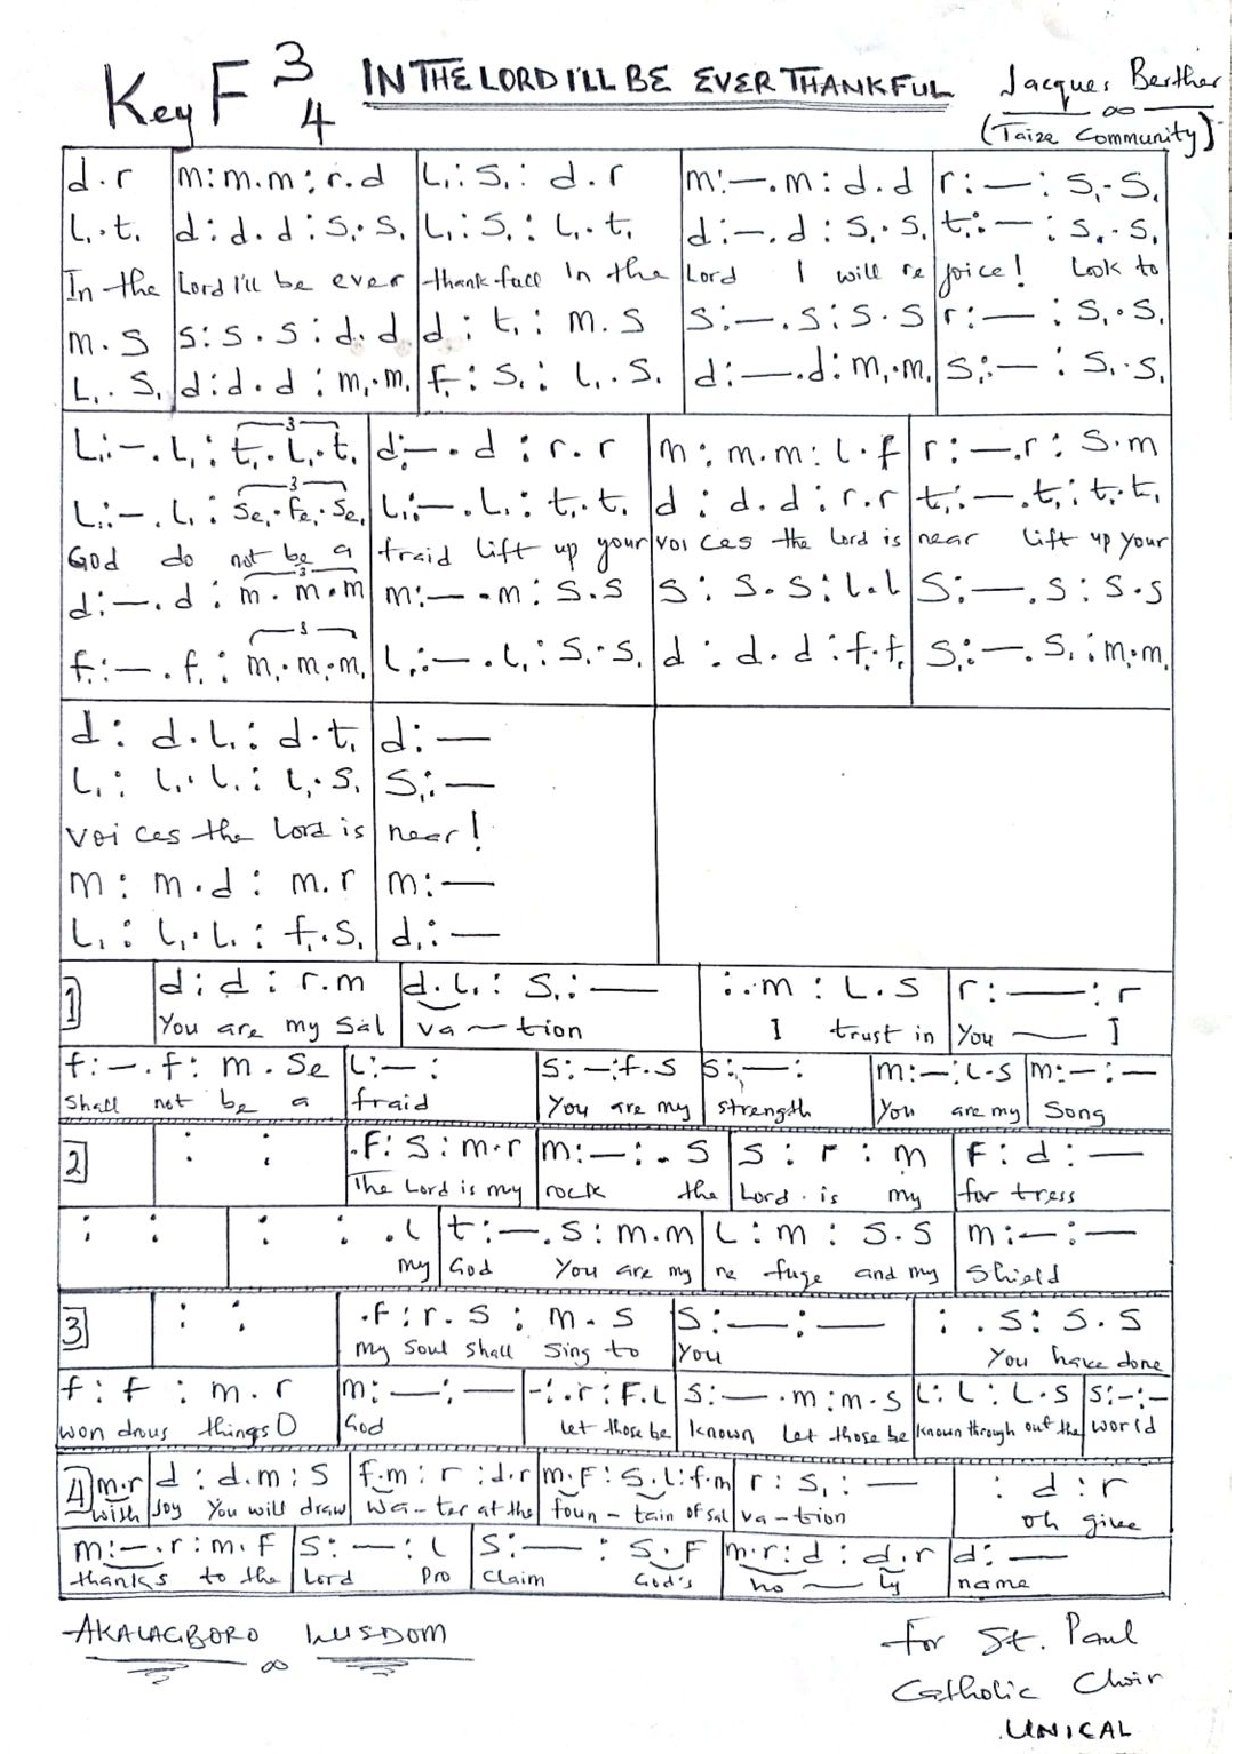 Key F 3/4 IN THE LORD I'LL BE EVER THANKFUL Jacques Berthier
(Taize Community)
d.r | m:m.m:r.d | L₁:S₁:d.r | m:—.m:d.d | r:—:S₁.S₁
L₁.t₁ | d:d.d:S₁.S₁ | L₁:S₁:L₁.t₁ | d:—.d:S₁.S₁ | t₁:—:S₁.S₁
In the | Lord I'll be ever | thank full In the | Lord I will re | joice! Look to
m.S | S:S.S:d.d | d:t₁:m.S | S:—.S:S.S | r:—:S₁.S₁
L₁.S₁ | d:d.d:m₁.m₁ | f₁:S₁:L₁.S₁ | d:—.d:m₁.m₁ | S₁:—:S₁.S₁
L₁:—.L₁:t₁.L₁.t₁ | d:—.d:r.r | m:m.m:l.f | r:—.r:S.m
L₁:—.L₁:Se₁.fe₁.Se₁ | L₁:—.L₁:t₁.t₁ | d:d.d:r.r | t₁:—.t₁:t₁.t₁
God do not be a | fraid lift up your | voi ces the Lord is | near lift up your
d:—.d:m.m.m | m:—.m:S.S | S:S.S:l.l | S:—.S:S.S
f₁:—.f₁:m₁.m₁.m₁ | L₁:—.L₁:S₁.S₁ | d:d.d:f₁.f₁ | S₁:—.S₁:m₁.m₁
d:d.L₁:d.t₁ | d:—
L₁:L₁.L₁:L₁.S₁ | S₁:—
voi ces the Lord is | near!
m:m.d:m.r | m:—
L₁:L₁.L₁:f₁.S₁ | d₁:—
1 | d:d:r.m | d.L₁:S₁:— | :.m:L.S | r:—:r
You are my Sal | va — tion | I trust in | You — I
f:—.f:m.Se | L:—: | S:—:f.S | S:—: | m:—:L.S | m:—:—
Shall not be a | fraid | You are my | strength | You are my | Song
2 | : : | .F:S:m.r | m:—:.S | S:r:m | F:d:—
The Lord is my | rock the | Lord is my | for tress
: : | : :.l | t:—.S:m.m | L:m:S.S | m:—:—
my | God You are my | re fuge and my | Shield
3 | : : | .F:r.S:m.S | S:—:— | :.S:S.S
my Soul shall Sing to | You | You have done
f:f:m.r | m:—:— | -:.r:F.L | S:—.m:m.S | L:L:L.S | S:—:—
won drous things O | God | let those be | known Let those be | known through out the | world
4 | m.r | d:d.m:S | f.m:r:d.r | m.F:S.L:f.m | r:S₁:— | :d:r
Wish | Joy You will draw | Wa — ter at the | foun — tain of Sal | va — tion | oh give
m:—.r:m.F | S:—:l | S:—:S.F | m.r:d:d.r | d:—
thanks to the | Lord Pro | claim God's | ho — ly | name
AKALAGBORO WISDOM
For St. Paul
Catholic Choir
UNICAL